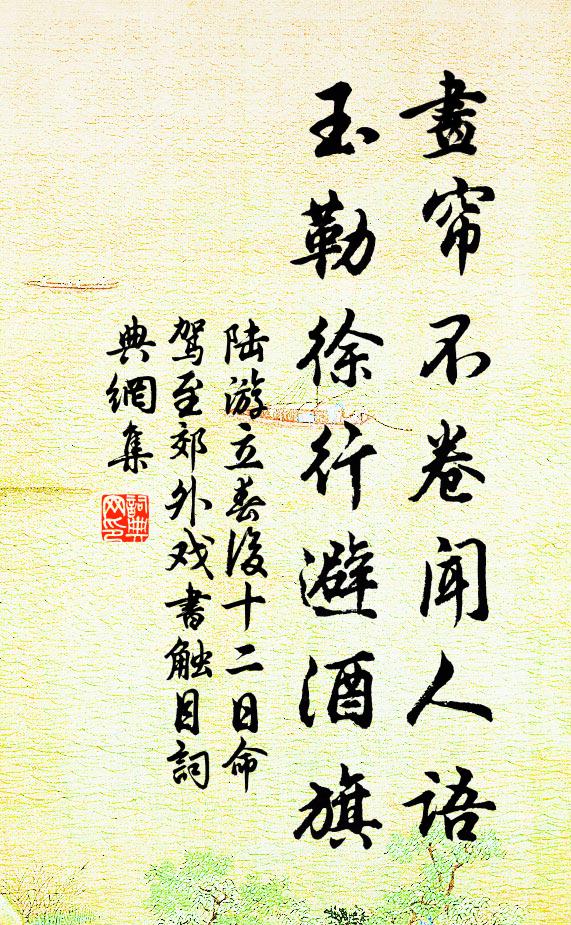 畫帘不卷闻人语
玉勒徐行避酒旗
陆游立春後十二日命
驾至郊外戏書触目詞
典網集
詞典
网印